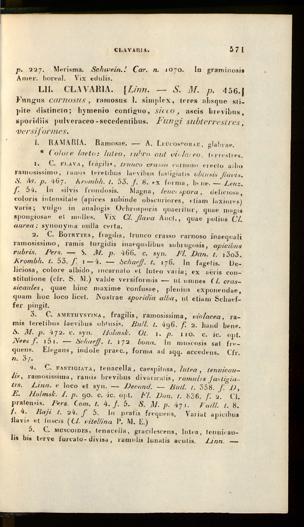 CLAVARIA. 571
p. 227. Merisma. Schwein.! Car. n. 1070. In graminosis
Amer. boreal. Vix edulis.
LII. CLAVARIA. [Linn. — S. M. p. 456.]
Fungus carnosus, ramosus l. simplex, teres absque sti-
pite distincto; hymenio contiguo, sicco, ascis brevibus,
sporidiis pulveraceo-secedentibus. Fungi subterrestres,
versiformes.
I. RAMARIA. Ramosae. — A. LEUCOSPORAE, glabrae.
* Colore laeto: luteo, rubro aut violaceo, terrestres.
1. C. FLAVA, fragilis, trunco crasso carnoso erecto albo
ramosissimo, ramis teretibus laevibus fastigiatis obtusis flavis.
S. M. p. 467. Krombh. t. 53. f. 8. ex forma, bene. — Lenz.
f. 54. In silvis frondosis. Magna, leucospora, deliciosa,
coloris intensitate (apices subinde obscuriores, etiam laxiores)
varia; vulgo in analogis Ochrosporis quaeritur, quae magis
spongiosae et molles. Vix Cl. flava Auct., quae potius Cl.
aurea: synonyma nulla certa.
2. C. BOTRYTES, fragilis, trunco crasso carnoso inaequali
ramosissimo, ramis turgidis inaequalibus subrugosis, apicibus
rubris. Pers. — S. M. p. 466. c. syn. Fl. Dan. t. 1303.
Krombh. t. 53. f. 1—4. — Schaeff. t. 176. In fagetis. De-
liciosa, colore albido, incarnato et luteo varia; ex aëris con-
stitutione (cfr. S. M.) valde versiformis — ut omnes Cl. cras-
sicaules, quae hinc maxime confusae, plenius exponendae,
quam hoc loco licet. Nostrae sporidia alba, ut etiam Schaef-
fer pingit.
3. C. AMETHYSTINA, fragilis, ramosissima, violacea, ra-
mis teretibus laevibus obtusis. Bull. t. 496. f. 2. haud bene.
S. M. p. 472. c. syn. Holmsk. Ot. 1. p. 110. c. ic. opt.
Nees f. 151. — Schaeff. t. 172 bona. In muscosis sat fre-
quens. Elegans, indole praec., forma ad sqq. accedens. Cfr.
n. 37.
4. C. FASTIGIATA, tenacella, caespitosa, lutea, tenuicau-
lis, ramosissima, ramis brevibus divaricatis, ramulis fastigia-
tis. Linn. e loco et syn. — Decand. — Bull. t. 358. f. D,
E. Holmsk. I. p. 90. c. ic. opt. Fl. Dan. t. 836. f. 2. Cl.
pratensis. Pers. Com. t. 4. f. 5. S. M. p. 471. Vaill. t. 8.
f. 4. Raji t. 24. f. 5. In pratis frequens. Variat apicibus
flavis et fuscis (Cl. vitellina P. M. E.)
5. C. MUSCOIDES, tenacella, gracilescens, lutea, tenuicau-
lis bis terve furcato-divisa, ramulis lunatis acutis. Linn. —